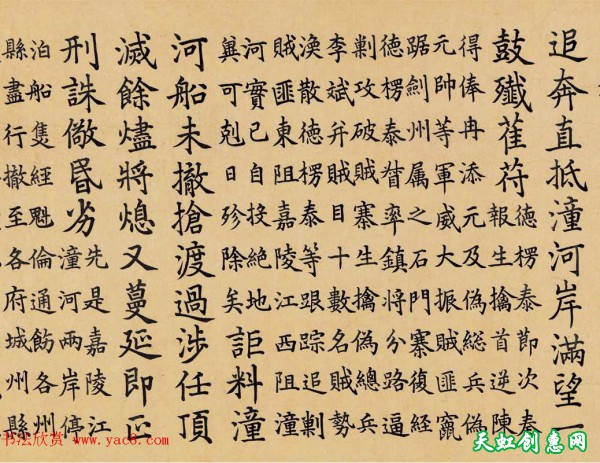 追奔直抵潼河岸滿望一
鼓殲萑苻
德楞泰節次奏
報生擒首逆陳
得俸冉添元及偽總兵偽
元帥等軍威大振賊匪竄
踞劍州属之石門寨復經
德楞泰督率鎮將分路逼
剿攻破賊寨生擒偽總兵
李斌并賊目十數名賊勢
渙散德楞泰等跟踪追剿
賊匪東阻嘉陵江西阻潼
河實已自投絕地
冀可剋日殄除矣
詎料潼
河船未撤搶渡過涉任頂
滅餘燼將熄又蔓延即正
刑誅儆昬劣
先是嘉陵江
潼河兩岸停
泊船隻經魁倫通飭各州
縣盡行撤至各府城州縣
书法欣赏 www.yac8.com
天虹创惠网